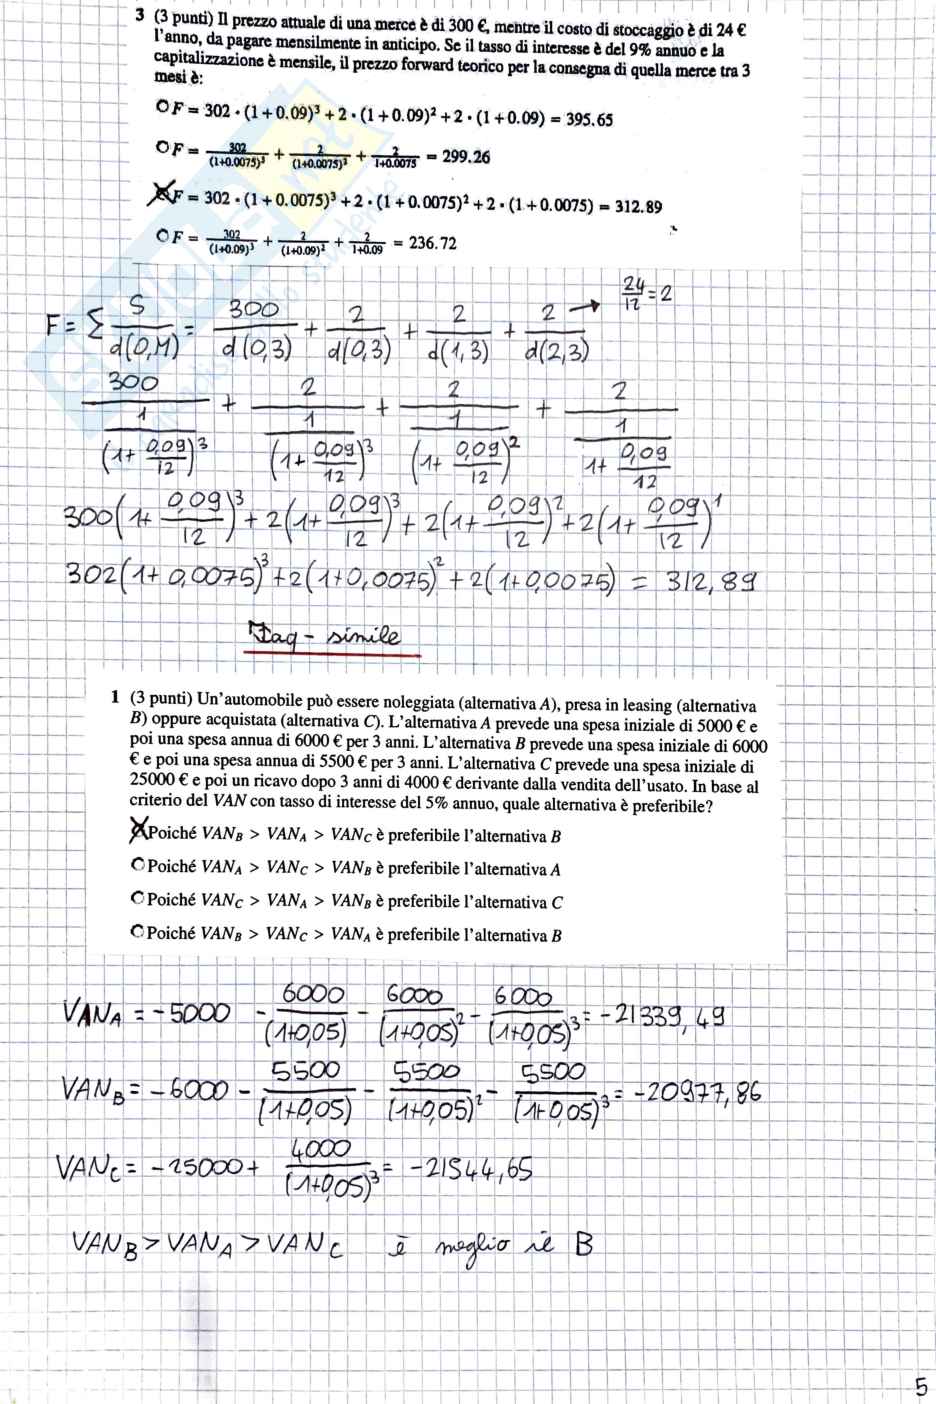 3 (3 punti) Il prezzo attuale di una merce è di 300 €, mentre il costo di stoccaggio è di 24 €
l'anno, da pagare mensilmente in anticipo. Se il tasso di interesse è del 9% annuo e la
capitalizzazione è mensile, il prezzo forward teorico per la consegna di quella merce tra 3
mesi è:
F = 302 · (1+0.09)³ + 2 · (1+0.09)² + 2 · (1+0.09) = 395.65
F = 302/(1+0.0075)³ + 2/(1+0.0075)³ + 2/1+0.0075 = 299.26
F = 302 · (1+0.0075)³ + 2 · (1+0.0075)² + 2 · (1+0.0075) = 312.89
F = 302/(1+0.09)³ + 2/(1+0.09)² + 2/1+0.09 = 236.72
24/12 = 2
F = Σ S/d(0,M) = 300/d(0,3) + 2/d(0,3) + 2/d(1,3) + 2/d(2,3) →
300/(1/(1+0,09/12)³) + 2/(1/(1+0,09/12)³) + 2/(1/(1+0,09/12)²) + 2/(1/1+0,09/12)
300(1+0,09/12)³ + 2(1+0,09/12)³ + 2(1+0,09/12)² + 2(1+0,09/12)¹
302(1+0,0075)³ + 2(1+0,0075)² + 2(1+0,0075) = 312,89
simile
1 (3 punti) Un'automobile può essere noleggiata (alternativa A), presa in leasing (alternativa
B) oppure acquistata (alternativa C). L'alternativa A prevede una spesa iniziale di 5000 € e
poi una spesa annua di 6000 € per 3 anni. L'alternativa B prevede una spesa iniziale di 6000
€ e poi una spesa annua di 5500 € per 3 anni. L'alternativa C prevede una spesa iniziale di
25000 € e poi un ricavo dopo 3 anni di 4000 € derivante dalla vendita dell'usato. In base al
criterio del VAN con tasso di interesse del 5% annuo, quale alternativa è preferibile?
Poiché VAN_B > VAN_A > VAN_C è preferibile l'alternativa B
Poiché VAN_A > VAN_C > VAN_B è preferibile l'alternativa A
Poiché VAN_C > VAN_A > VAN_B è preferibile l'alternativa C
Poiché VAN_B > VAN_C > VAN_A è preferibile l'alternativa B
VAN_A = -5000 - 6000/(1+0,05) - 6000/(1+0,05)² - 6000/(1+0,05)³ = -21339,49
VAN_B = -6000 - 5500/(1+0,05) - 5500/(1+0,05)² - 5500/(1+0,05)³ = -20977,86
VAN_C = -25000 + 4000/(1+0,05)³ = -21544,65
VAN_B > VAN_A > VAN_C è meglio il B
5